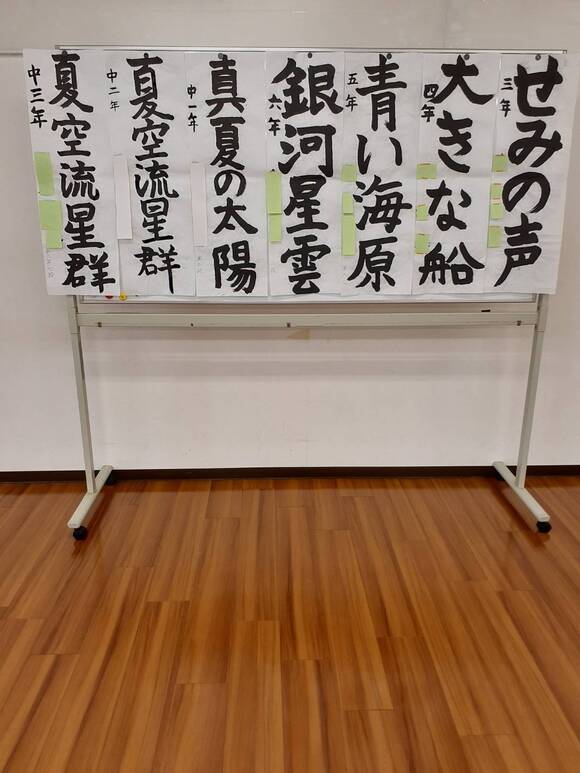 せみの声
三年
大きな船
四年
青い海原
五年
銀河星雲
六年
真夏の太陽
中一年
夏空流星群
中二年
夏空流星群
中三年